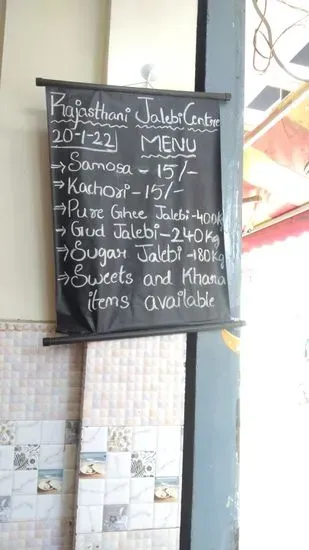 Rajasthani Jalebi Centre
20-1-22 MENU
→Samosa - 15/-
→Kachori - 15/-
→Pure Ghee Jalebi - 400Kg
→Gud Jalebi - 240Kg
→Sugar Jalebi - 180Kg
→Sweets and Khana
items available